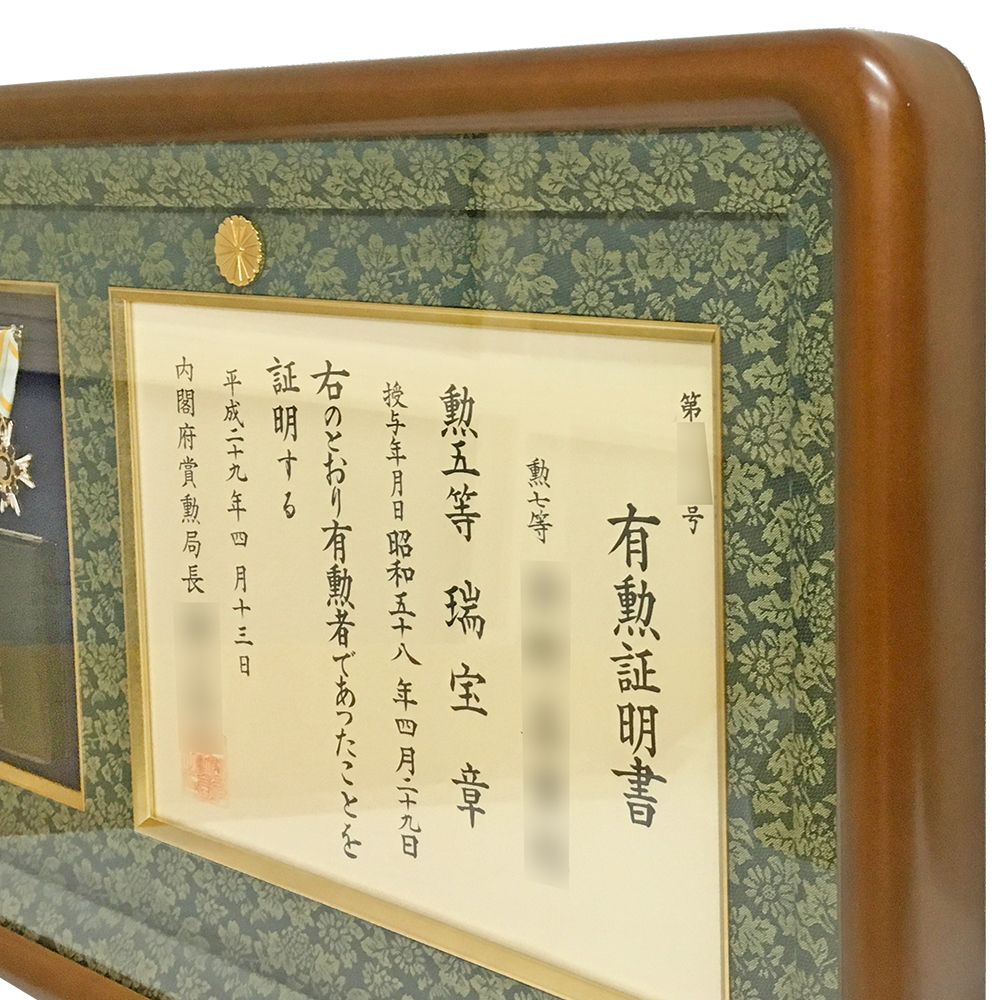 第 号
有勲証明書
勲七等
勲五等 瑞宝章
授与年月日 昭和五十八年四月二十九日
右のとおり有勲者であったことを
証明する
平成二十九年四月十三日
内閣府賞勲局長